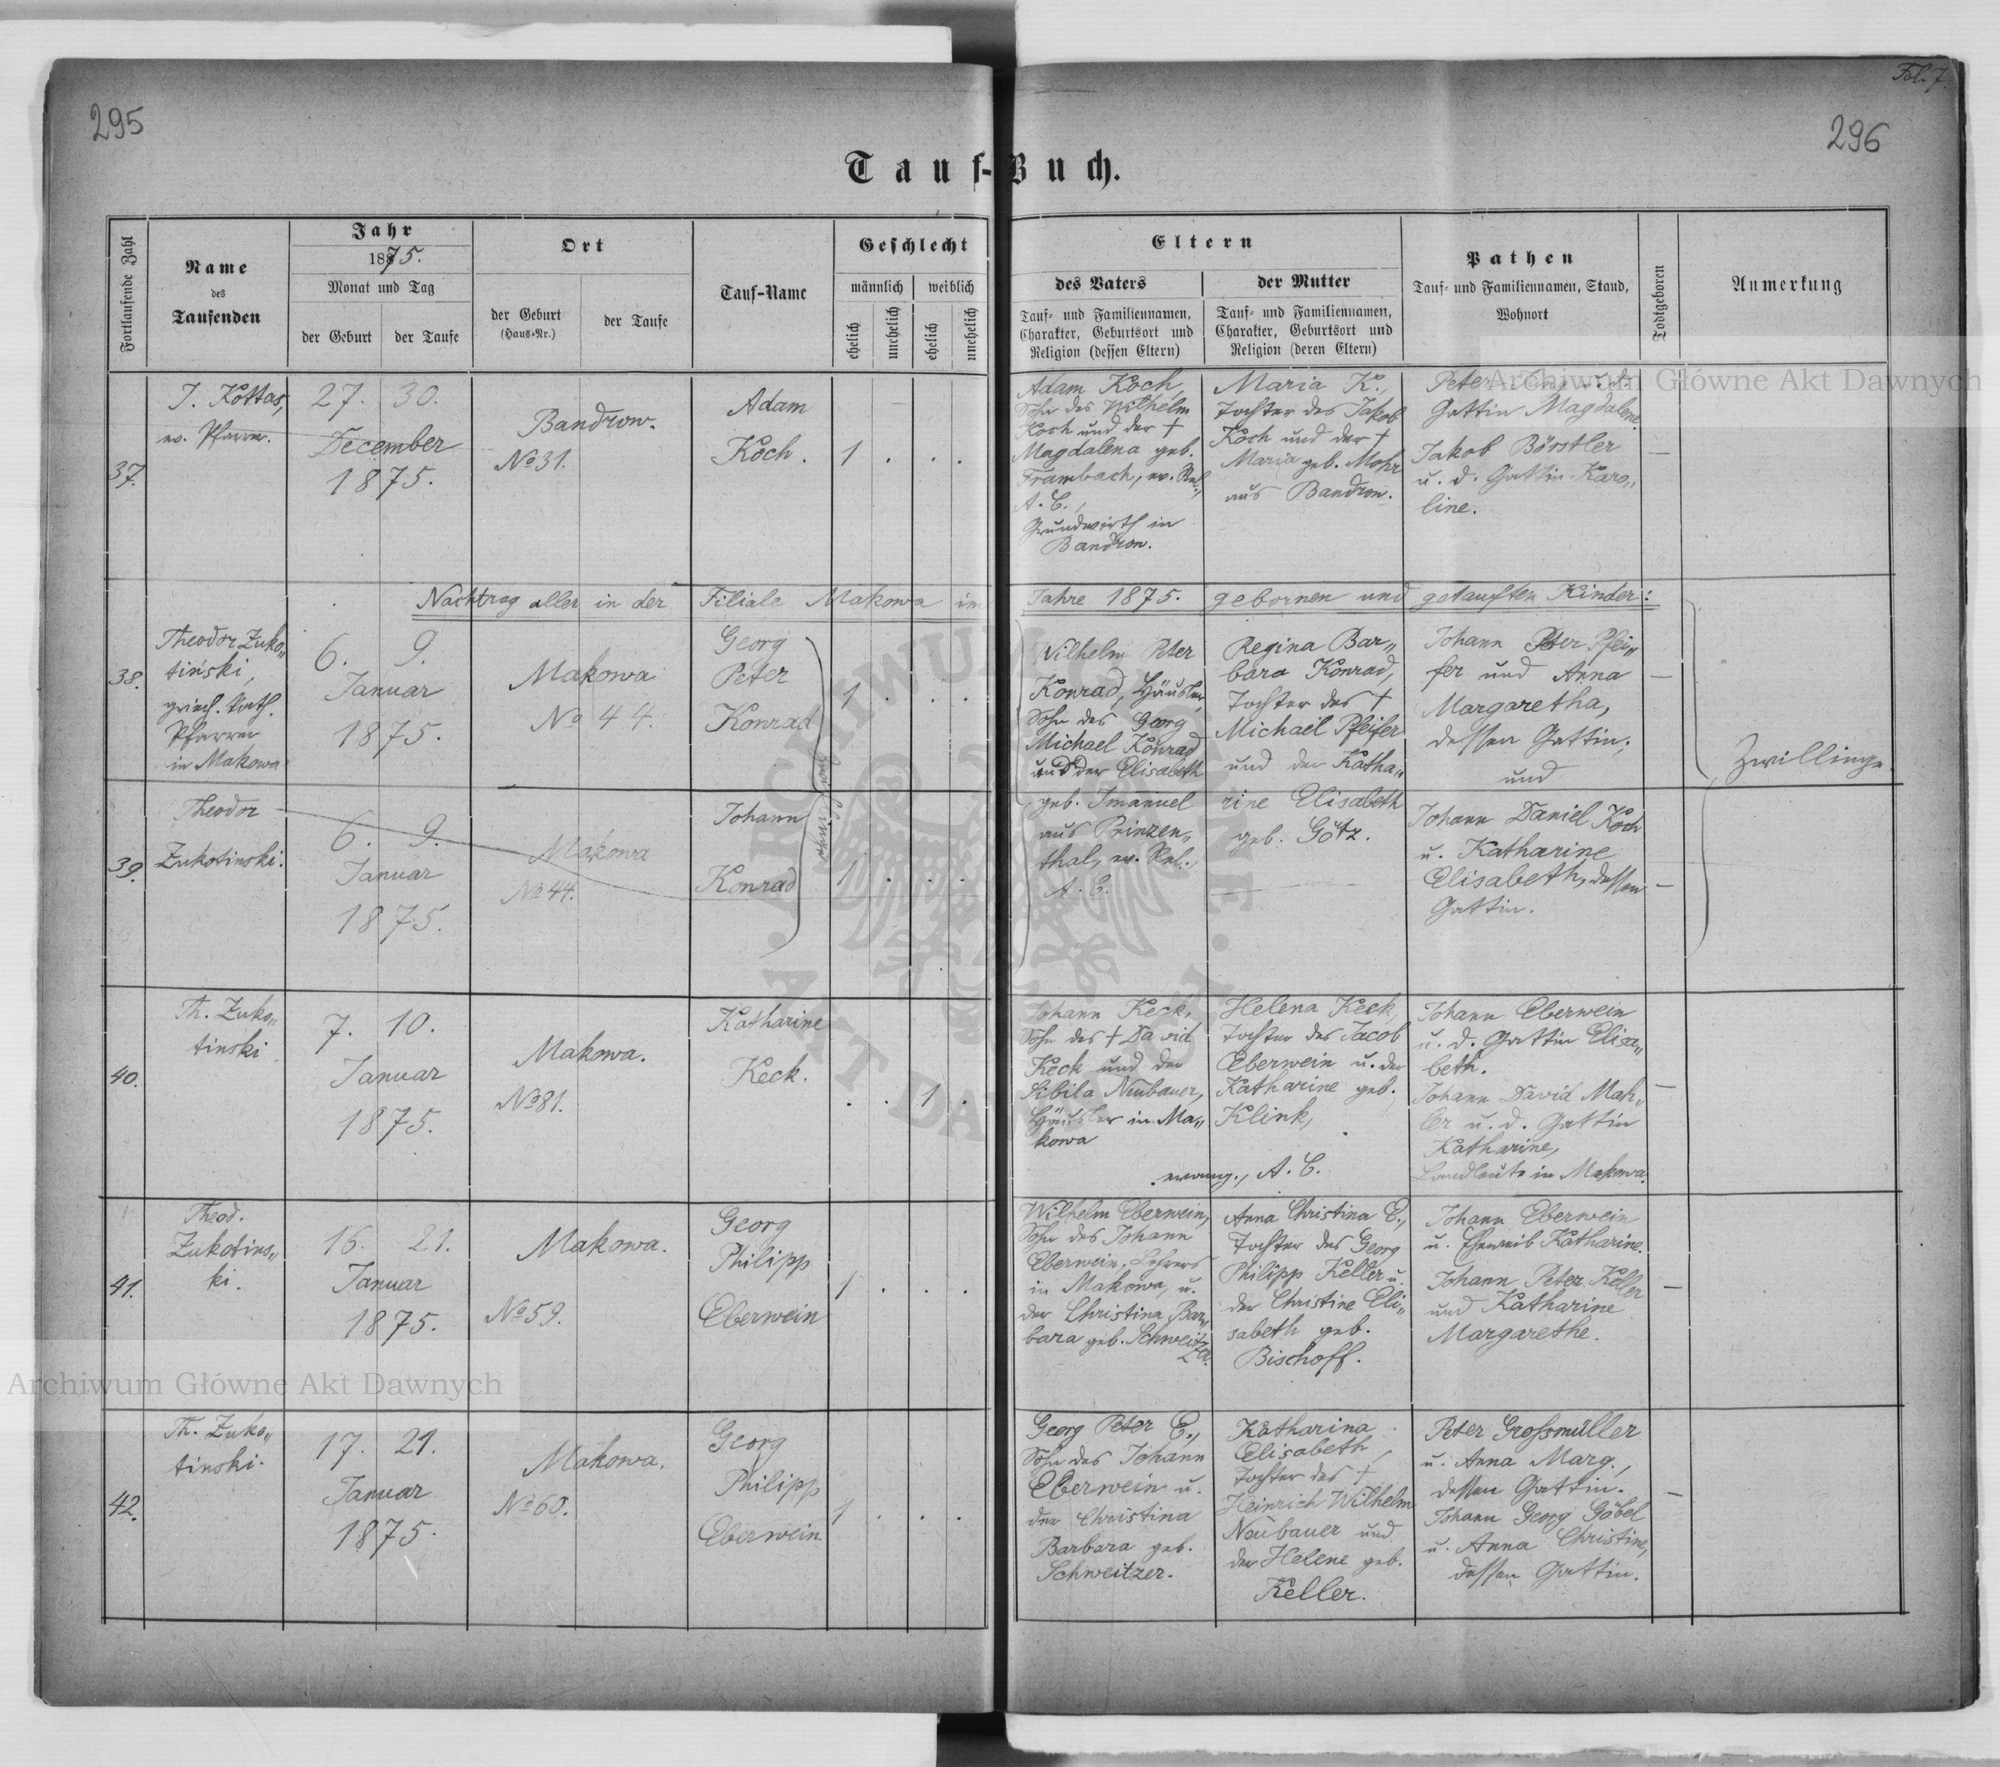 Fol. 7.
295
296
Tauf-Buch.
Fortlaufende Zahl
Name
des
Taufenden
Jahr
1875.
Monat und Tag
der Geburt
der Taufe
Ort
der Geburt
(Haus-Nr.)
der Taufe
Tauf-Name
Geschlecht
männlich
weiblich
ehelich
unehelich
ehelich
unehelich
Eltern
des Vaters
Tauf- und Familiennamen,
Charakter, Geburtsort und
Religion (dessen Eltern)
der Mutter
Tauf- und Familiennamen,
Charakter, Geburtsort und
Religion (deren Eltern)
Pathen
Tauf- und Familiennamen, Stand,
Wohnort
Todtgeboren
Anmerkung
37.
J. Kottas,
ev. Pfarrer.
27. 30.
December
1875.
Bandrow.
No 31.
Adam
Koch.
1 . . .
Adam Koch,
Sohn des Wilhelm
Koch und der †
Magdalena geb.
Frambach, ev. Rel.,
A. C.,
Grundwirth in
Bandrow.
Maria K.,
Tochter des Jakob
Koch und der †
Maria geb. Mohr
aus Bandrow.
Peter u. d.
Gattin Magdalena
Jakob Börstler
u. d. Gattin Karo„
line.
—
Nachtrag aller in der Filiale Makowa im Jahre 1875. gebornen und getauften Kinder:
38.
Theodor Zuko„
tiński,
griech. kath.
Pfarrer
in Makowa
6. 9.
Januar
1875.
Makowa
No 44.
Georg
Peter
Konrad
1 . . .
Wilhelm Peter
Konrad, Häusler,
Sohn des Georg
Michael Konrad
und der Elisabeth
geb. Imanuel
aus Prinzen„
thal, ev. Rel.,
A. C.
Regina Bar„
bara Konrad,
Tochter des †
Michael Pfeifer
und der Katha„
rine Elisabeth
geb. Götz.
Johann Peter Pfei„
fer und Anna
Margaretha,
dessen Gattin;
und
—
Zwillinge
39.
Theodor
Zukotinski.
6. 9.
Januar
1875.
Makowa
No 44.
Johann
Konrad
1 . . .
Johann Daniel Koch
u. Katharine
Elisabeth, dessen
Gattin.
—
40.
Th. Zuko„
tinski
7. 10.
Januar
1875.
Makowa.
No 81.
Katharine
Keck.
. . 1 .
Johann Keck,
Sohn des † David
Keck und der
Sibila Neubauer,
Häusler in Ma„
kowa
evang., A. C.
Helena Keck,
Tochter des Jacob
Eberwein u. der
Katharine geb.
Klink,
Johann Eberwein
u. d. Gattin Elisa„
beth.
Johann David Mah„
ler u. d. Gattin
Katharine,
Landleute in Makowa.
—
41.
Theod.
Zukotins„
ki.
16. 21.
Januar
1875.
Makowa.
No 59.
Georg
Philipp
Eberwein
1 . . .
Wilhelm Eberwein,
Sohn des Johann
Eberwein, Lehrers
in Makowa, u.
der Christina Bar„
bara geb. Schweit
zer.
Anna Christina E.,
Tochter des Georg
Philipp Keller u.
der Christine Eli„
sabeth geb.
Bischoff.
Johann Eberwein
u. Eheweib Katharine.
Johann Peter Keller
und Katharine
Margarethe.
—
42.
Th. Zuko„
tinski.
17. 21.
Januar
1875.
Makowa.
No 60.
Georg
Philipp
Eberwein.
1 . . .
Georg Peter E.,
Sohn des Johann
Eberwein u.
der Christina
Barbara geb.
Schweitzer.
Katharina
Elisabeth,
Tochter des †
Heinrich Wilhelm
Neubauer und
der Helene geb.
Keller.
Peter Grossmüller
u. Anna Marg.,
dessen Gattin.
Johann Georg Göbel
u. Anna Christine,
dessen Gattin.
—
Archiwum Główne Akt Dawnych
Archiwum Główne Akt Dawnych